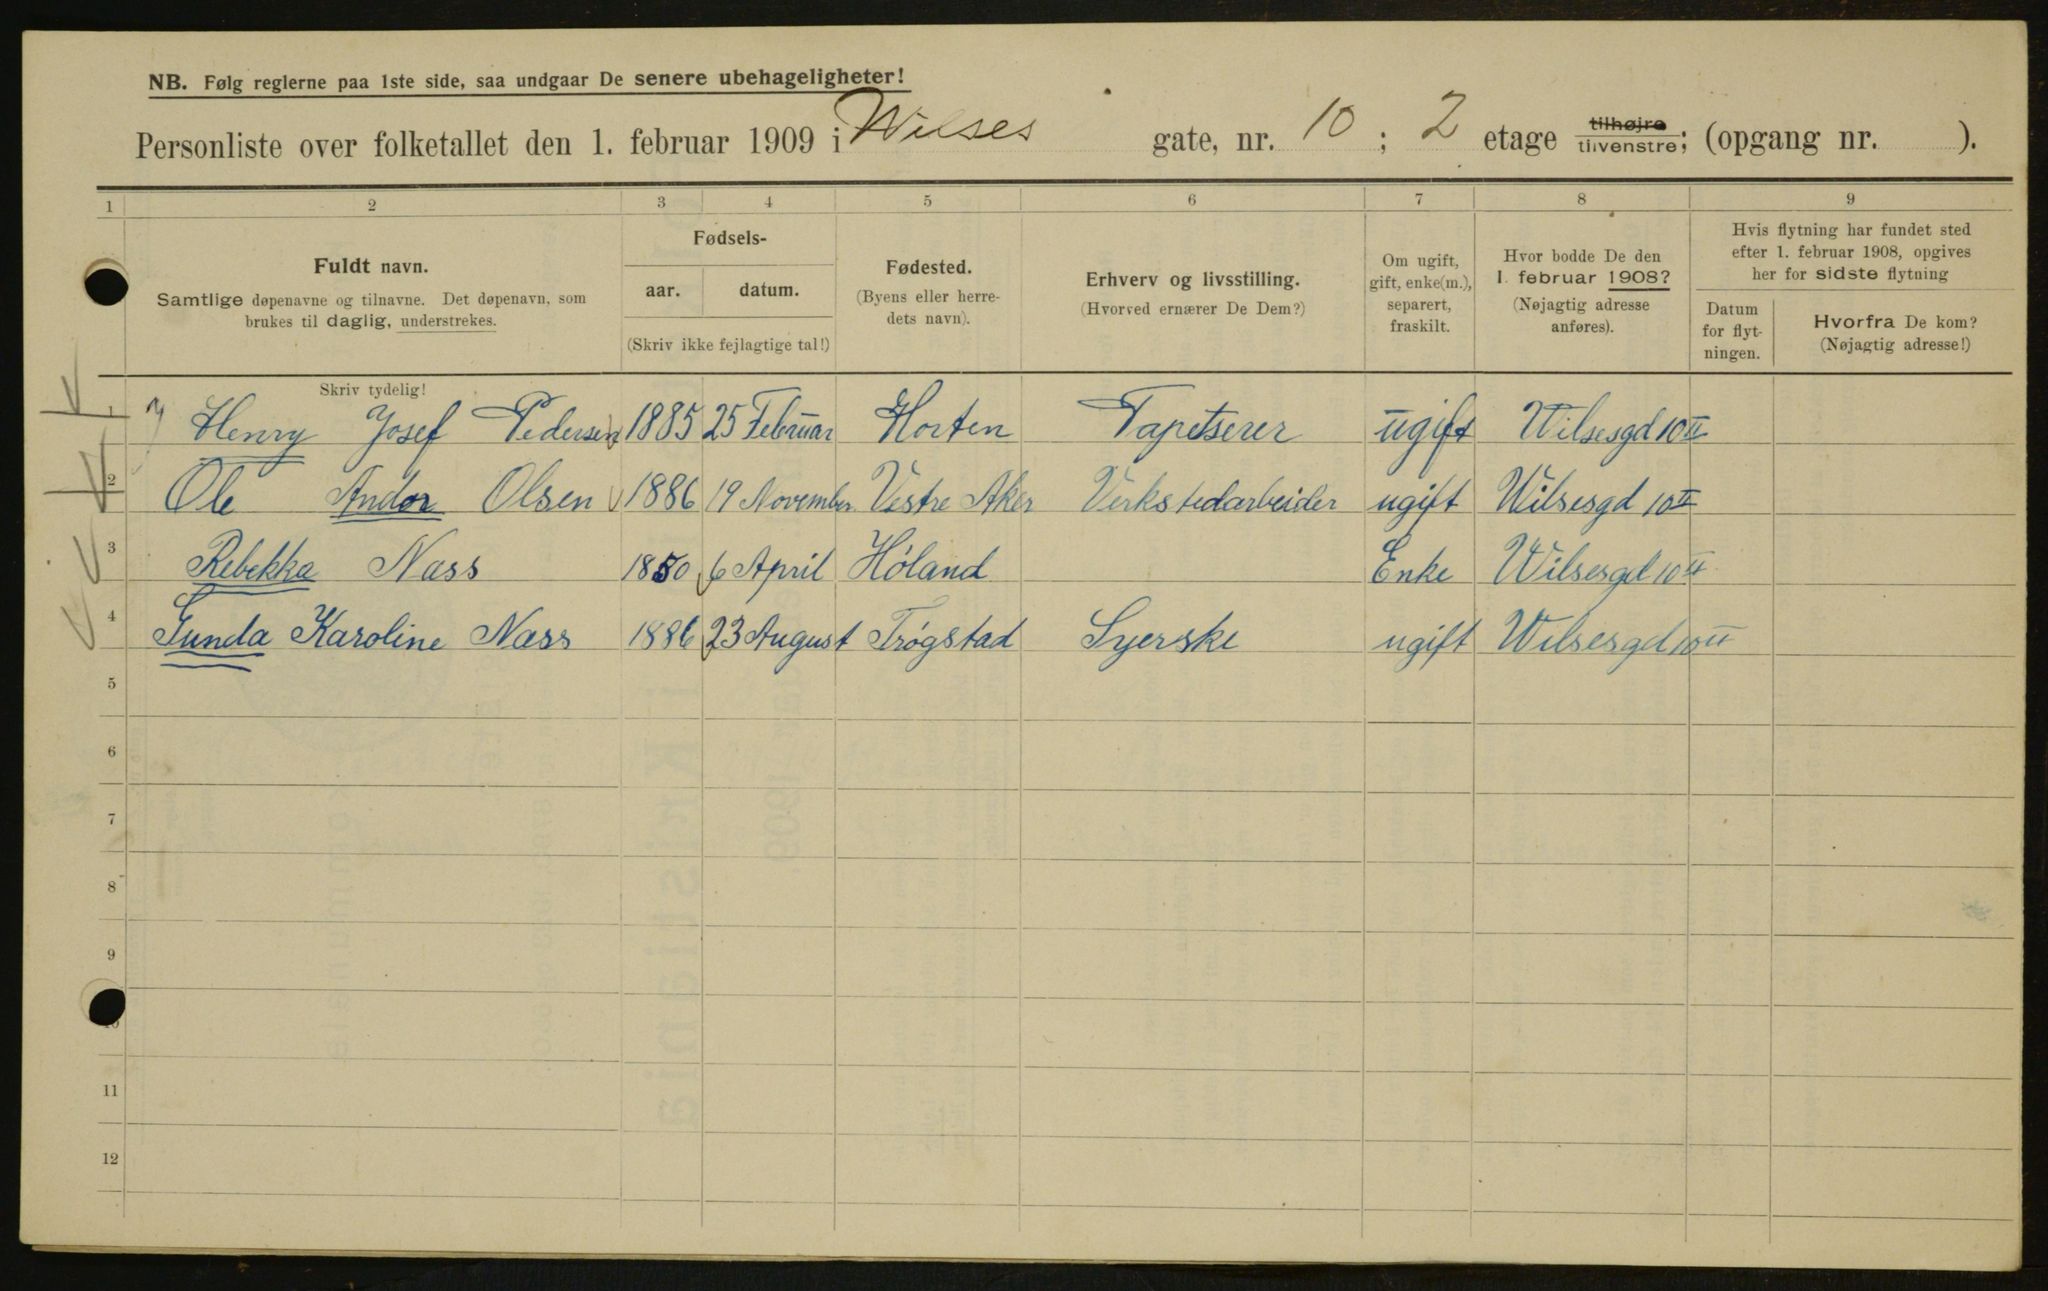 NB. Følg reglerne paa 1ste side, saa undgaar De senere ubehageligheter!
Personliste over folketallet den 1. februar 1909 i Wilses gate, nr. 10 ; 2 etage tilhøjre tilvenstre; (opgang nr. ).
1 2 3 4 5 6 7 8 9
Fuldt navn.
Samtlige døpenavne og tilnavne. Det døpenavn, som
brukes til daglig, understrekes.
Skriv tydelig!
Fødsels-
aar. datum.
(Skriv ikke fejlagtige tal!)
Fødested.
(Byens eller herre-
dets navn).
Erhverv og livsstilling.
(Hvorved ernærer De Dem?)
Om ugift,
gift, enke(m.),
separert,
fraskilt.
Hvor bodde De den
1. februar 1908?
(Nøjagtig adresse
anføres).
Hvis flytning har fundet sted
efter 1. februar 1908, opgives
her for sidste flytning
Datum
for flyt-
ningen.
Hvorfra De kom?
(Nøjagtig adresse!)
1 Henry Josef Pedersen 1885 25 Februar Horten Tapetserer ugift Wilsesgd 10 II
2 Ole Andor Olsen 1886 19 November Vestre Aker Verkstedarbeider ugift Wilsesgd 10 II
3 Rebekka Næss 1850 6 April Høland Enke Wilsesgd 10 II
4 Gunda Karoline Næss 1886 23 August Trøgstad Syerske ugift Wilsesgd 10 II
5
6
7
8
9
10
11
12